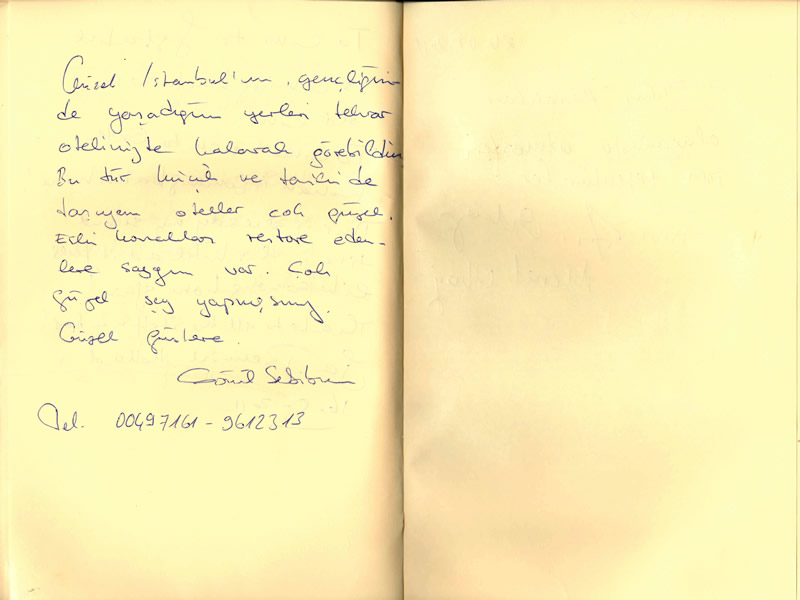 Güzel İstanbul'un, gençliğim
de yaşadığım yerleri tekrar
otelinizde kalarak görebildim
Bu tür küçük ve tarihi de
taşıyan oteller çok güzel.
Eski konakları restore eden-
lere saygım var. Çok
güzel şey yapmışsınız.
Güzel günlere.
Gönül
Tel. 00497161-9612313